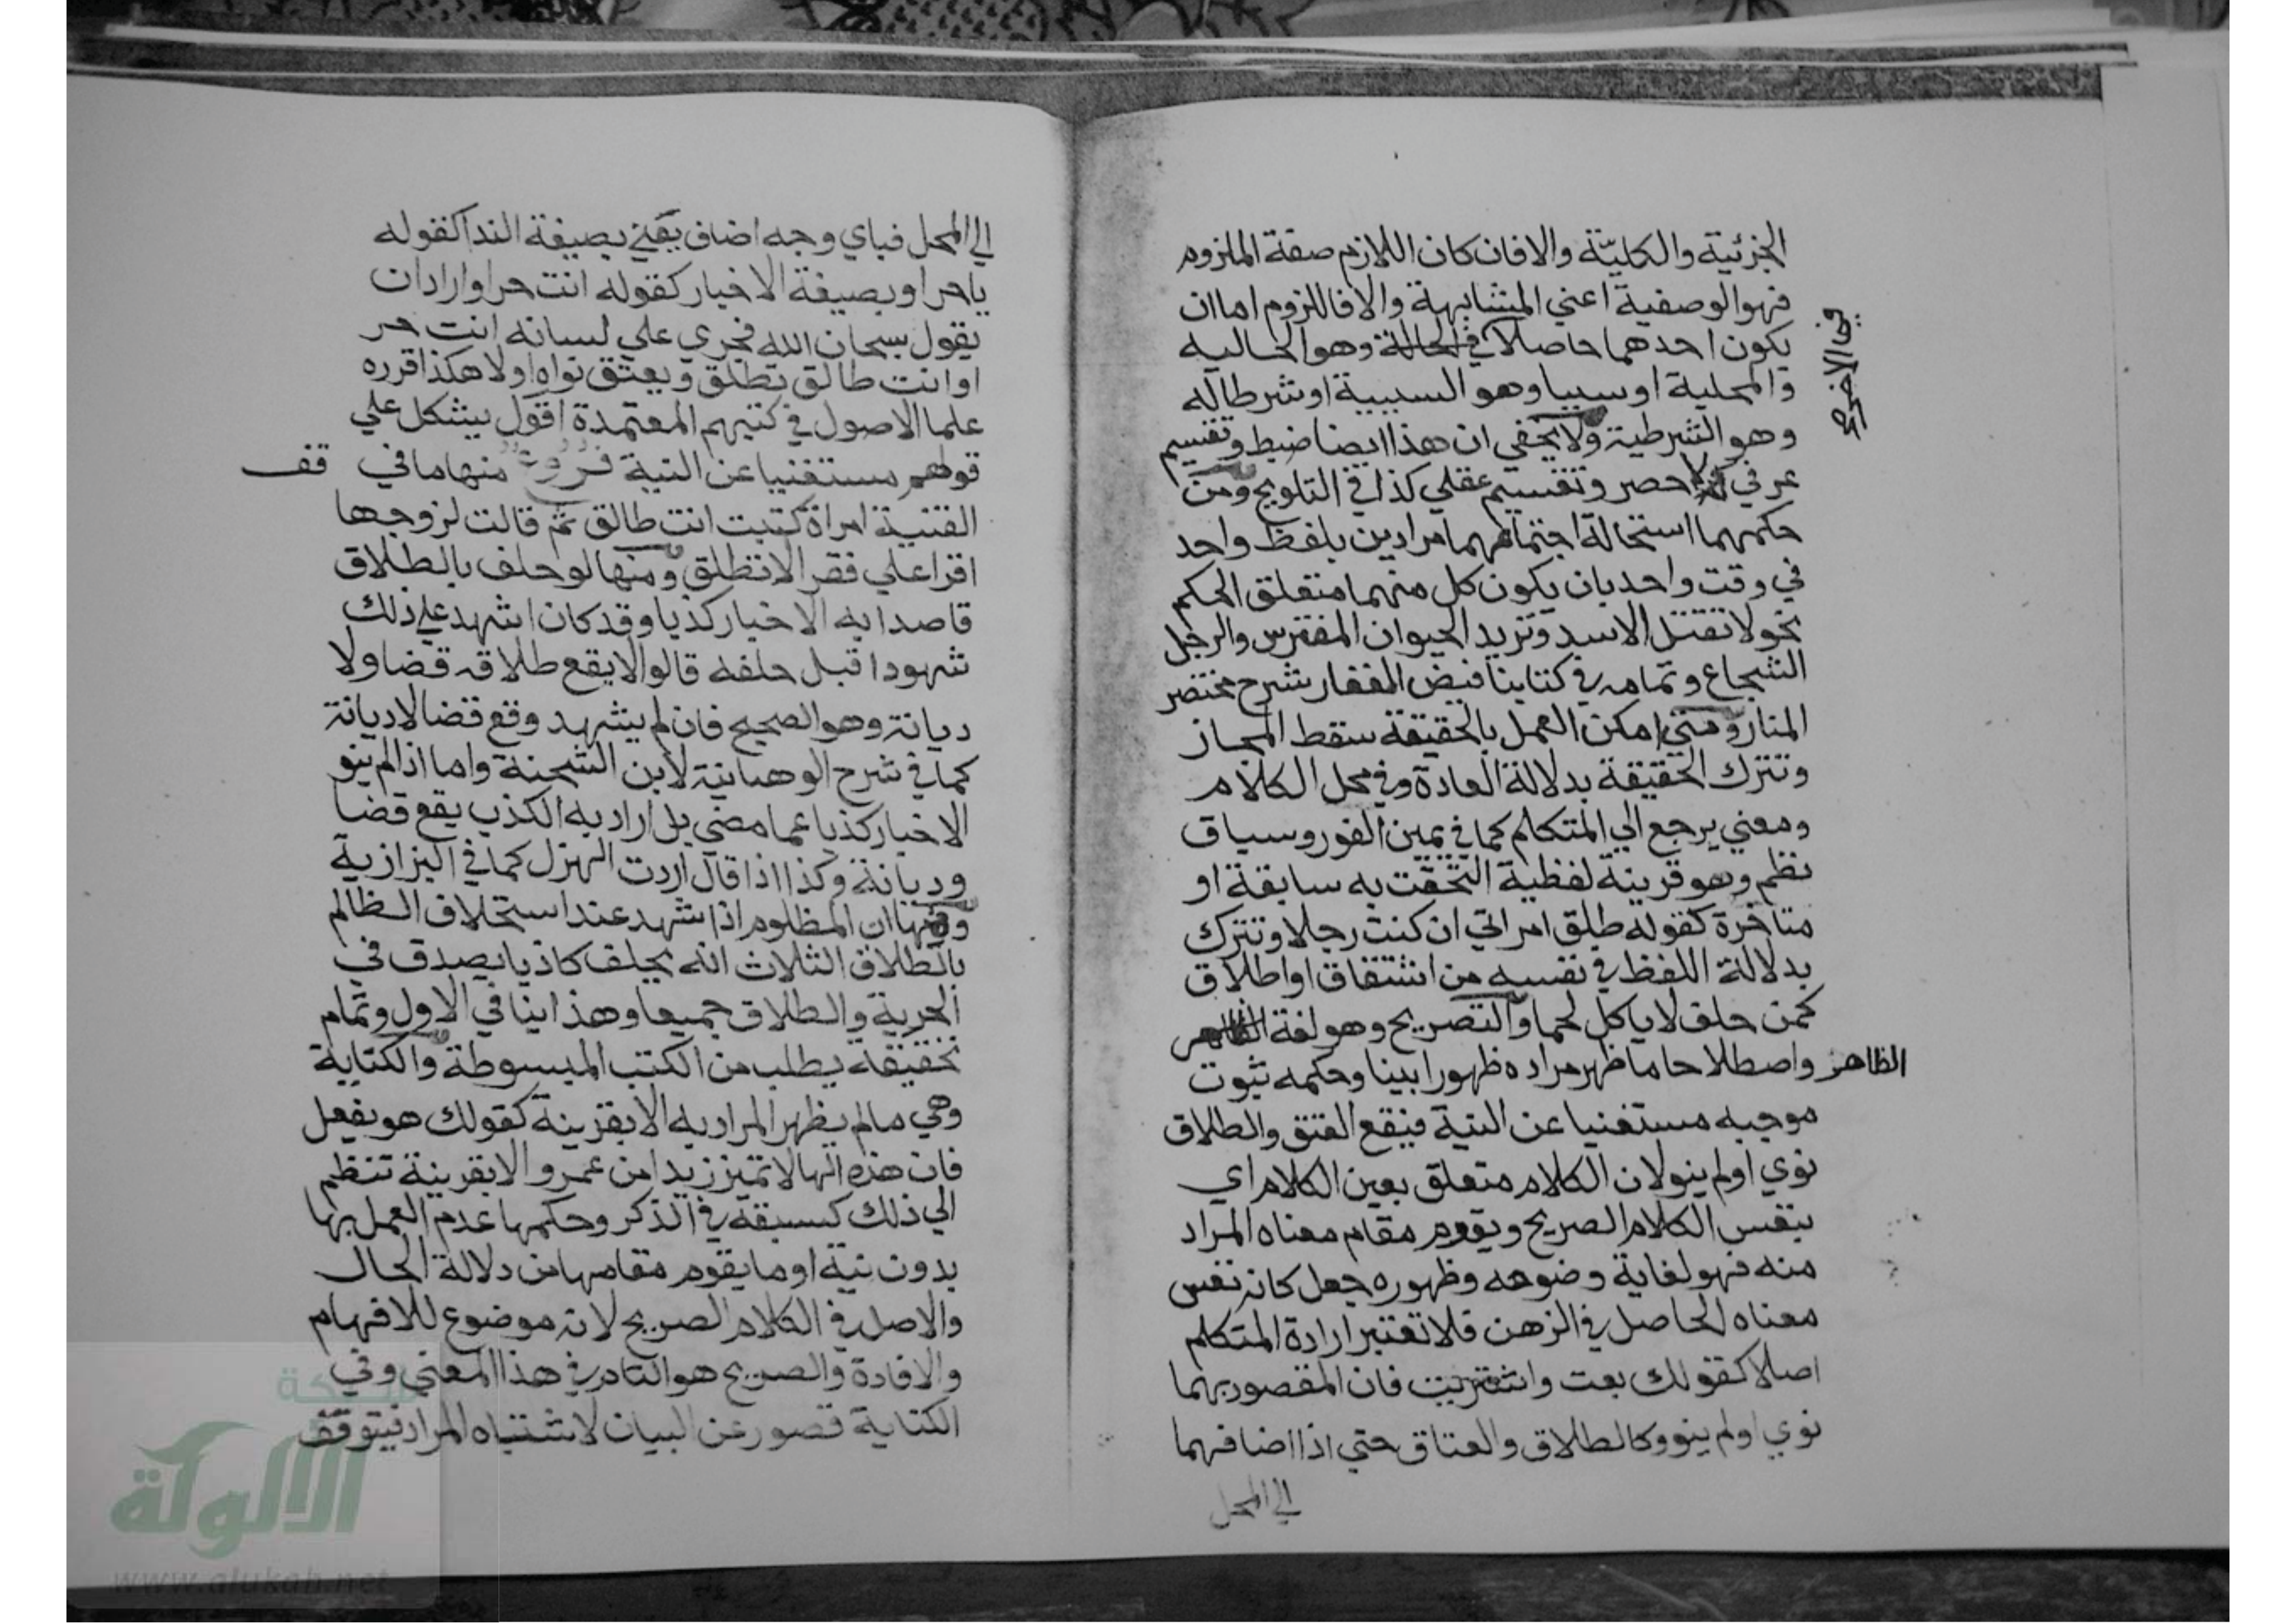 الجزئية والكليّة والا فان كان اللازم صفة الملزوم
فهو الوصفية اعني المشابهة والا فاللزوم اما ان
يكون احدهما حاصلا في الحالة وهو الحالية
في الاخر صح
والمحلية او سببا وهو السببية او شرطا له
وهو الشرطية ولا يخفي ان هذا ايضا ضبط وتقسيم
عرفي لا حصر وتقسيم عقلي كذا في التلويح ومن
حكمهما استحالة اجتماعهما مرادين بلفظ واحد
في وقت واحد بان يكون كل منهما متعلق الحكم
نحو لا تقتل الاسد وتريد الحيوان المفترس والرجل
الشجاع وتمامه في كتابنا فيض الغفار شرح مختصر
المنار ومتي امكن العمل بالحقيقة سقط المجاز
وتترك الحقيقة بدلالة العادة وفي محل الكلام
ومعني يرجع الي المتكلم كما في يمين الفور وسياق
نظم وهو قرينة لفظية التحقت به سابقة او
متاخرة كقوله طلق امراتي ان كنت رجلا وتترك
بدلالة اللفظ في نفسه من اشتقاق او اطلاق
كمن حلف لا ياكل لحما والتصريح وهو لغة
الظاهر واصطلاحا ما ظهر مراده ظهورا بينا وحكمه ثبوت
موجبه مستغنيا عن النية فيقع العتق والطلاق
نوي او لم ينو لان الكلام متعلق بعين الكلام اي
بنفس الكلام الصريح ويقوم مقام معناه المراد
منه فهو لغاية وضوحه وظهوره جعل كانه نفس
معناه الحاصل في الذهن فلا تعتبر ارادة المتكلم
اصلا كقولك بعت واشتريت فان المقصود بهما
نوي او لم ينو وكالطلاق والعتاق حتي اذا اضافهما
الي المحل
الي المحل فباي وجه اضاف يعني بصيغة الندا كقوله
يا حر او بصيغة الاخبار كقوله انت حر او اراد ان
يقول سبحان الله فجري علي لسانه انت حر
او انت طالق تطلق ويعتق نواه او لا هكذا قرره
علما الاصول في كتبهم المعتمدة اقول يشكل علي
قولهم مستغنيا عن النية فروع منها ما في
قف
القنية امراة كتبت انت طالق ثم قالت لزوجها
اقرا علي فقرا لا تطلق ومنها لو حلف بالطلاق
قاصدا به الاخبار كذبا وقد كان اشهد علي ذلك
شهودا قبل حلفه قالوا لا يقع طلاقه قضا ولا
ديانة وهو الصحيح فان لم يشهد وقع قضا لا ديانة
كما في شرح الوهبانية لابن الشحنة واما اذا لم ينو
الاخبار كذبا عما مضي بل اراد به الكذب يقع قضا
وديانة وكذا اذا قال اردت الهزل كما في البزازية
ومنها ان المظلوم اذا اشهد عند استحلاف الظالم
بالطلاق الثلاث انه يحلف كاذبا يصدق في
الحرية والطلاق جميعا وهذا ينافي الاول وتمام
تحقيقه يطلب من الكتب المبسوطة والكناية
وهي ما لم يظهر المراد به الا بقرينة كقولك هو يفعل
فان هذه الها لا تميز زيدا من عمرو الا بقرينة تنظم
الي ذلك كسبقه في الذكر وحكمها عدم العمل بها
بدون نية او ما يقوم مقامها من دلالة الحال
والاصل في الكلام الصريح لانه موضوع للافهام
والافادة والصريح هو التام في هذا المعني وفي
الكناية قصور عن البيان لاشتباه المراد فيتوقف
شبكة
الألوكة
www.alukah.net